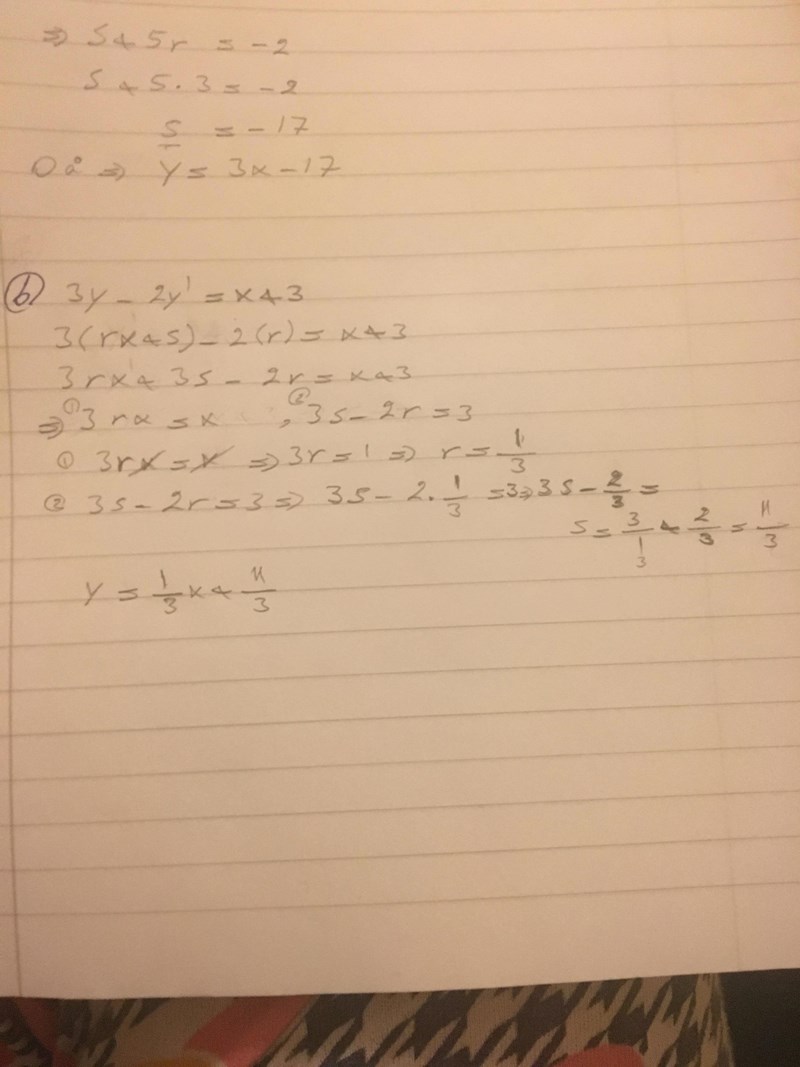 ⇒ S + 5r = -2
S + 5 · 3 = -2
S = -17
Då ⇒ y = 3x - 17
b) 3y - 2y' = x + 3
3(rx + s) - 2(r) = x + 3
3rx + 3s - 2r = x + 3
⇒ ① 3rx = x , ② 3s - 2r = 3
① 3rx = x ⇒ 3r = 1 ⇒ r = 1/3
② 3s - 2r = 3 ⇒ 3s - 2 · 1/3 = 3 ⇒ 3s - 2/3 =
s = 3/1 3 + 2/3 = 11/3
y = 1/3 x + 11/3